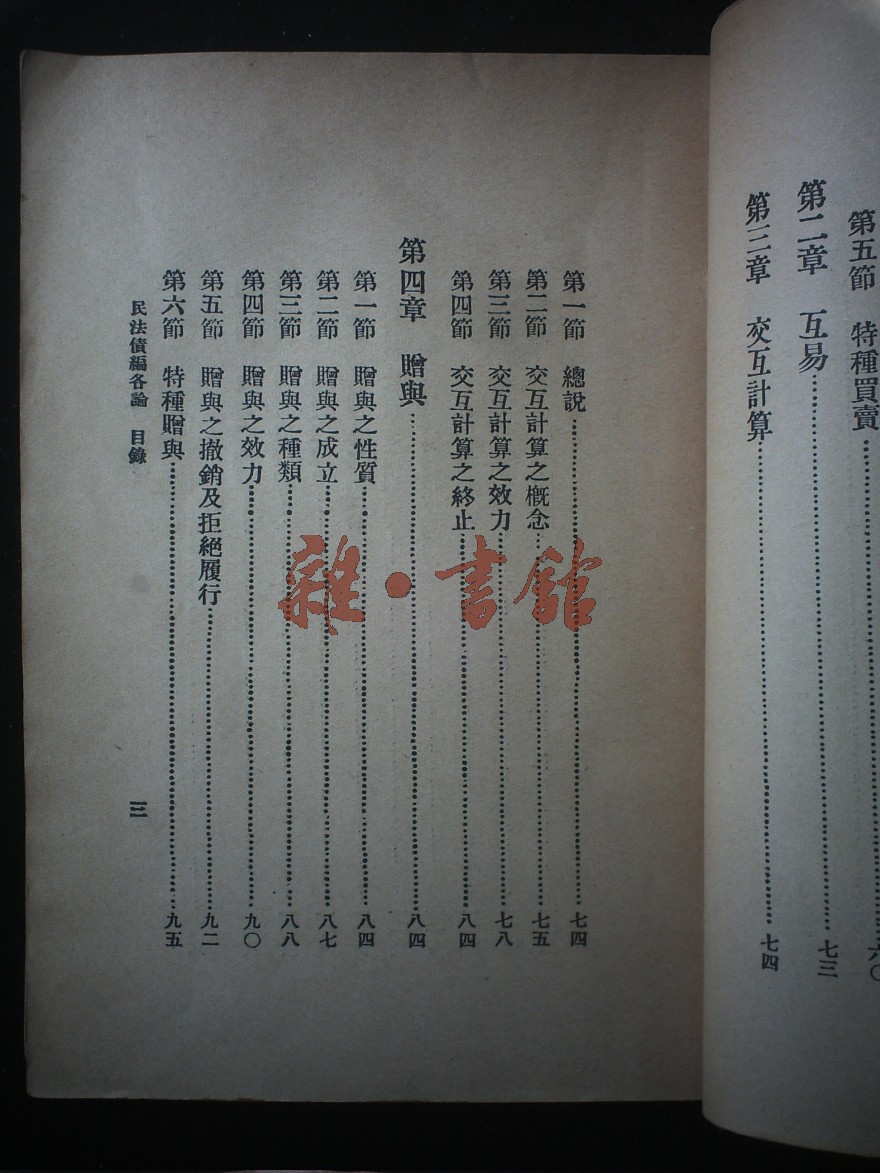 第五節　特種買賣……六〇
第二章　互易……七三
第三章　交互計算……七四
第一節　總說……七四
第二節　交互計算之概念……七五
第三節　交互計算之效力……七八
第四節　交互計算之終止……八四
第四章　贈與……八四
第一節　贈與之性質……八四
第二節　贈與之成立……八七
第三節　贈與之種類……八八
第四節　贈與之效力……九〇
第五節　贈與之撤銷及拒絕履行……九二
第六節　特種贈與……九五
民法債編各論　目錄
三
雜·書館